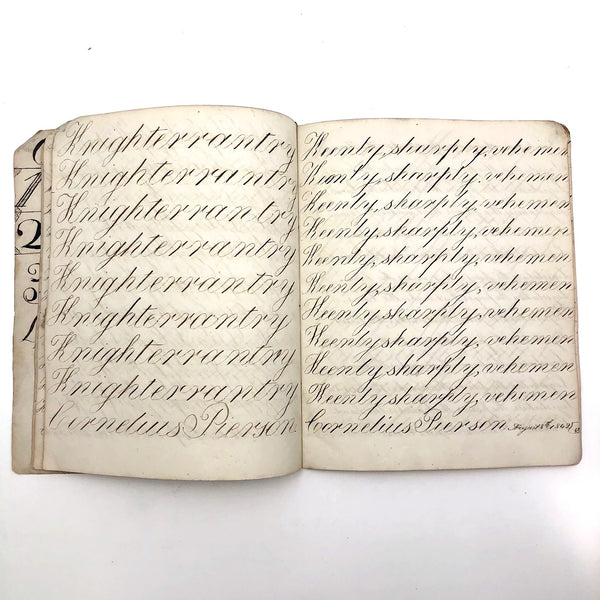 1
2
3
Knighterrantry
Knighterrantry
Knighterrantry
Knighterrantry
Knighterrantry
Knighterrantry
Knighterrantry
Knighterrantry
Cornelius Pierson
Keenly, sharply, vehemen
Keenly, sharply, vehemen
Keenly, sharply, vehemen
Keenly, sharply, vehemen
Keenly, sharply, vehemen
Keenly, sharply, vehemen
Keenly, sharply, vehemen
Keenly, sharply, vehemen
Keenly, sharply, vehemen
Keenly, sharply, vehemen
Cornelius Pierson August